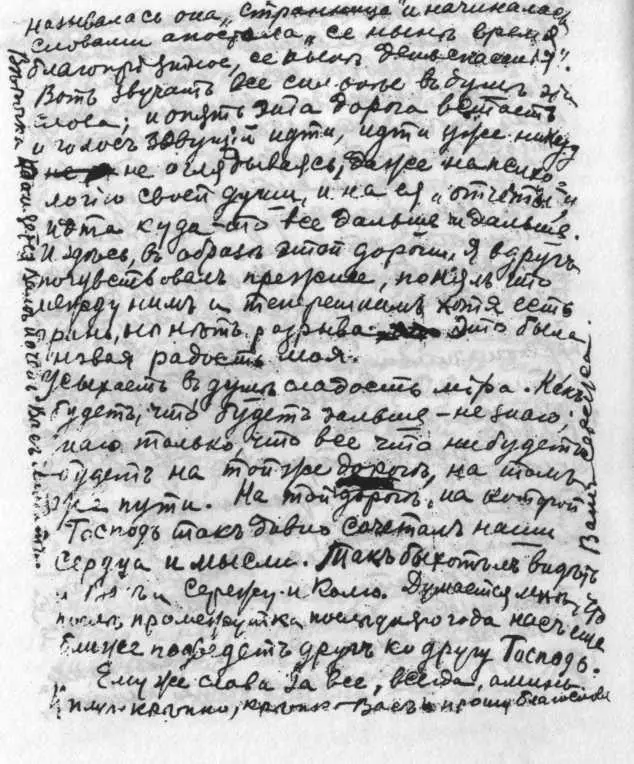 называлась она „Странница“ и начиналась
словами апостола „се нынѣ время
благопріятное, се нынѣ день спасенія“.
Вотъ звучатъ все сильнѣе въ душѣ эти
слова; и опять эта дорога встаетъ
и голосъ зовущій идти, идти уже никуда
не оглядываясь, даже на психо-
логію своей души, и на ея „отчеты“, и
идти куда-то все дальше и дальше.
И здѣсь, въ образѣ этой дороги, я вдругъ
почувствовалъ прежнее, понялъ что
между нимъ и теперешнимъ хотя есть
грань, но нѣтъ разрыва. Это была
новая радость моя.
Усыхаетъ въ душѣ сладость міра. Какъ
будетъ, что будетъ дальше – не знаю;
знаю только, что все что ни будетъ
будетъ на той же дорогѣ, на томъ
же пути. На той дорогѣ, на которой
Господь такъ давно сочеталъ наши
сердца и мысли. Такъ бы хотѣлъ видѣть
и Сережу и Колю. Думается мнѣ, что
послѣ промежутка послѣдняго года насъ еще
ближе подведетъ другъ ко другу Господь.
Ему же слава за все, всегда, аминь.
крѣпко, крѣпко Васъ и прошу благослов
Вашъ
Васъ